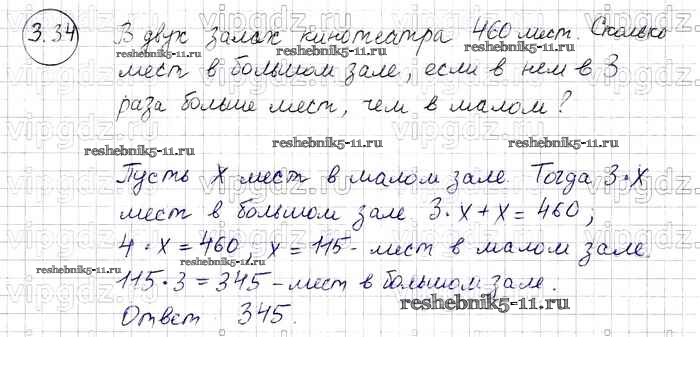 3.34 В двух залах кинотеатра 460 мест. Сколько
мест в большом зале, если в нем в 3
раза больше мест, чем в малом?
Пусть x мест в малом зале. Тогда 3·x
мест в большом зале. 3·x+x=460;
4·x=460; x=115- мест в малом зале.
115·3=345-мест в большом зале.
Ответ 345.
reshebnik5-11.ru
reshebnik5-11.ru
reshebnik5-11.ru
reshebnik5-11.ru
reshebnik5-11.ru
reshebnik5-11.ru
reshebnik5-11.ru